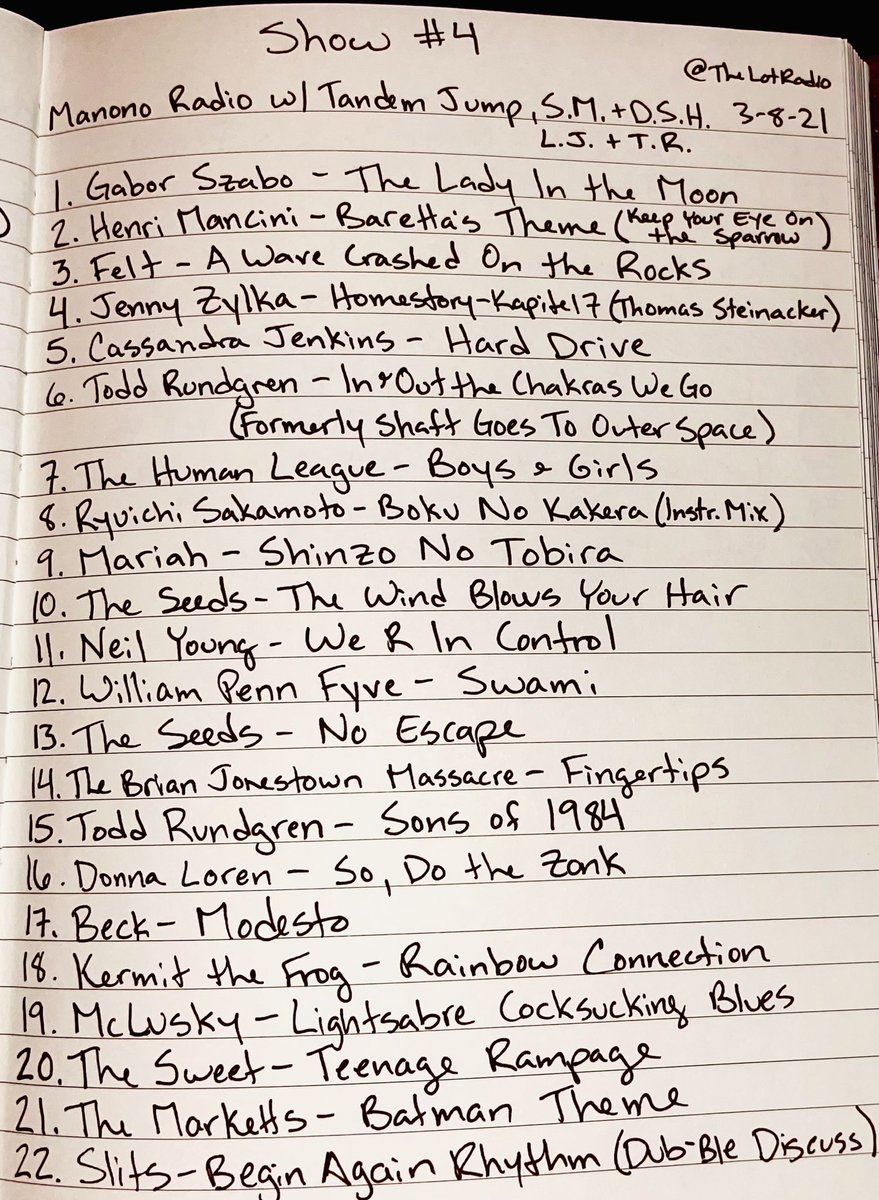 Show #4
@TheLotRadio
Manono Radio w/ Tandem Jump, S.M. + D.S.H. 3-8-21
L.J. + T.R.
1. Gabor Szabo - The Lady In the Moon
2. Henri Mancini - Baretta's Theme (Keep Your Eye On the Sparrow)
3. Felt - A Wave Crashed On the Rocks
4. Jenny Zylka - Homestory-Kapitel 7 (Thomas Steinacker)
5. Cassandra Jenkins - Hard Drive
6. Todd Rundgren - In & Out the Chakras We Go
(Formerly Shaft Goes To Outer Space)
7. The Human League - Boys & Girls
8. Ryuichi Sakamoto - Boku No Kakera (Instr. Mix)
9. Mariah - Shinzo No Tobira
10. The Seeds - The Wind Blows Your Hair
11. Neil Young - We R In Control
12. William Penn Fyve - Swami
13. The Seeds - No Escape
14. The Brian Jonestown Massacre - Fingertips
15. Todd Rundgren - Sons of 1984
16. Donna Loren - So, Do the Zonk
17. Beck - Modesto
18. Kermit the Frog - Rainbow Connection
19. McLusky - Lightsabre Cocksucking Blues
20. The Sweet - Teenage Rampage
21. The Marketts - Batman Theme
22. Slits - Begin Again Rhythm (Dub-Ble Discuss)